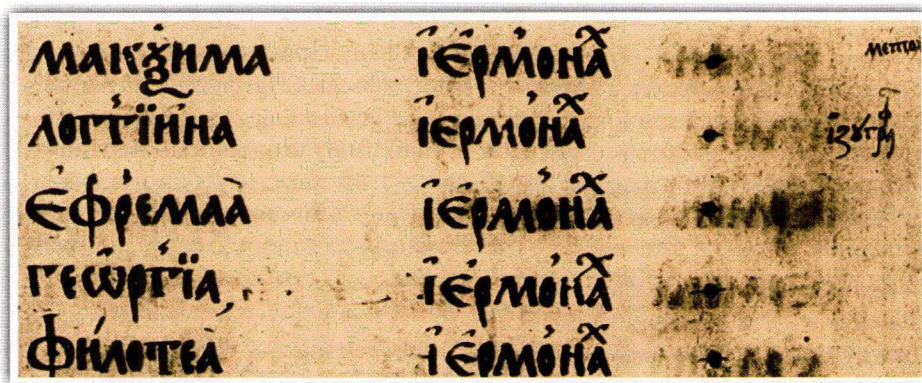 макѯима їермонаⷯ
логгїина їермонаⷯ
єфремаа їермонаⷯ
геѡргїа їермонаⷯ
филотеа їермонаⷯ